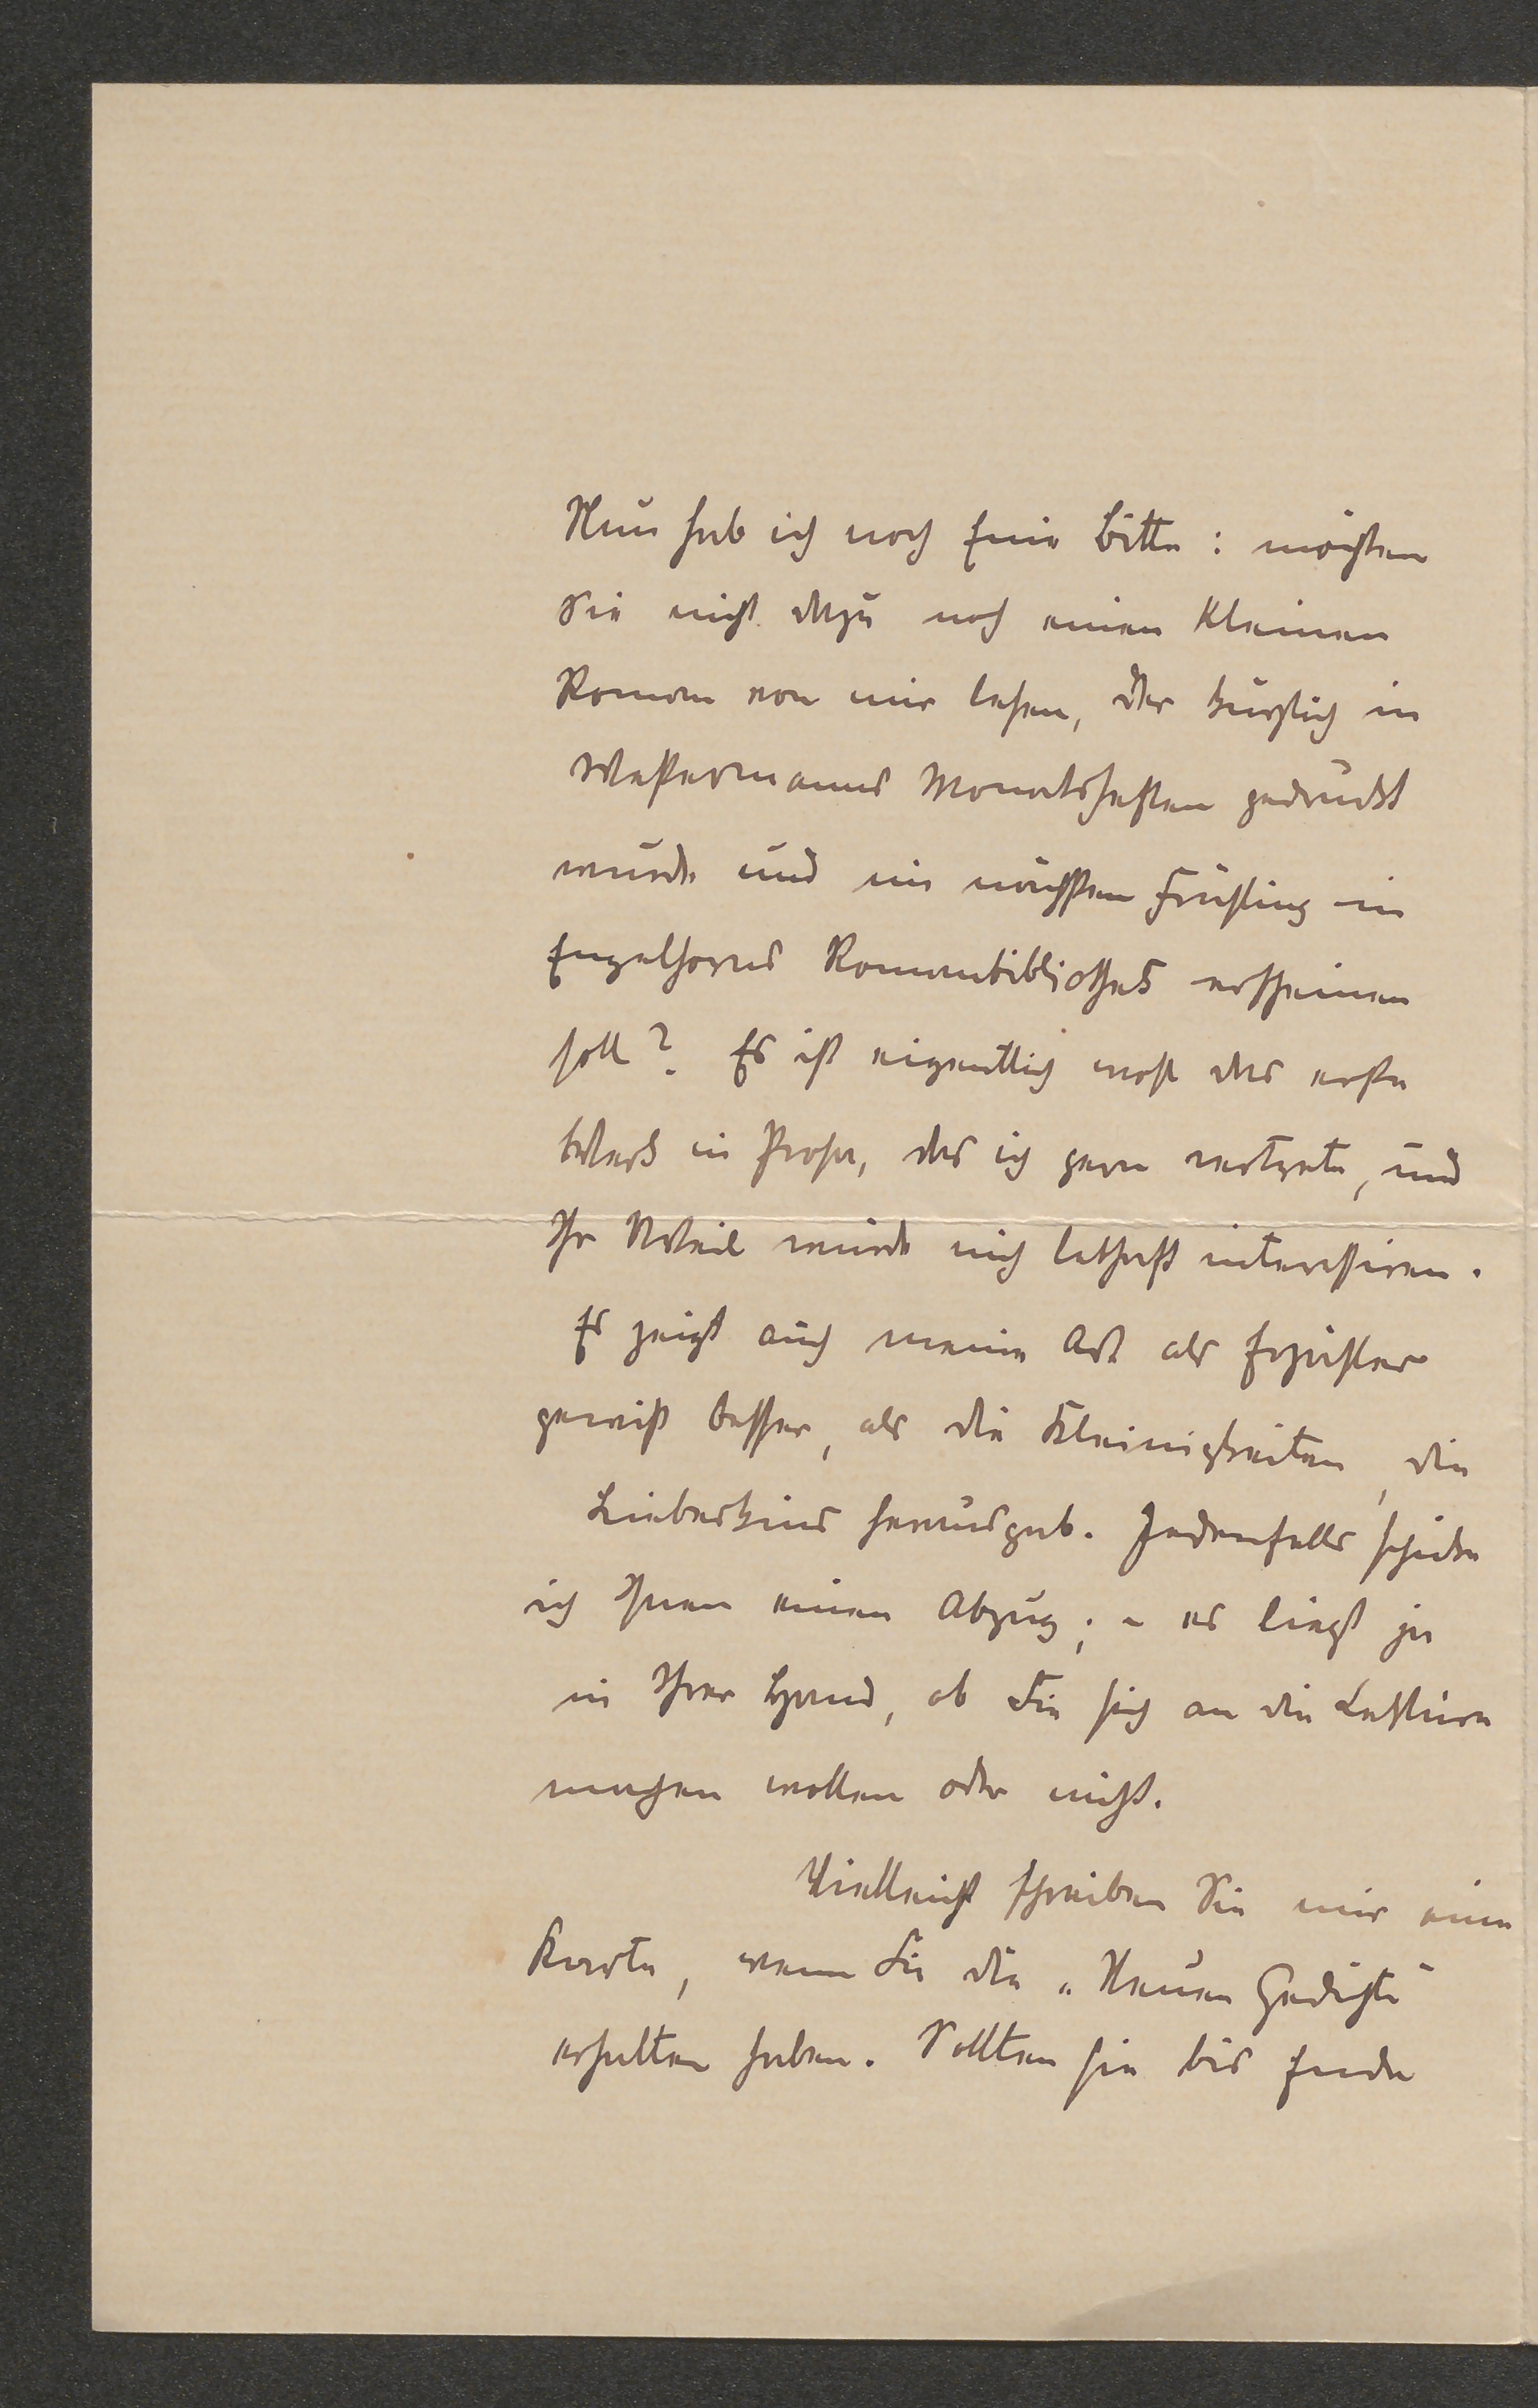 Nun hab ich noch Eine Bitte: möchten
Sie nicht dazu noch einen kleinen
Roman von mir lesen, der kürzlich in
Westermanns Monatsheften gedruckt
wurde und im nächsten Frühling in
Engelhorns Romanbibliothek erscheinen
soll? Es ist eigentlich wohl das erste
Werk in Prosa, das ich gern vertrete, und
Ihr Urteil würde mich lebhaft interessiren.
Es zeigt auch meine Art als Erzähler
gewiß besser, als die Kleinigkeiten, die
Liebeskind herausgab. Jedenfalls schicke
ich Ihnen einen Abzug; – es liegt ja
in Ihrer Hand, ob Sie sich an die Lektüre
machen wollen oder nicht.
Vielleicht schreiben Sie mir eine
Karte, wenn Sie die „Neuen Gedichte“
erhalten haben. Sollten sie bis Ende